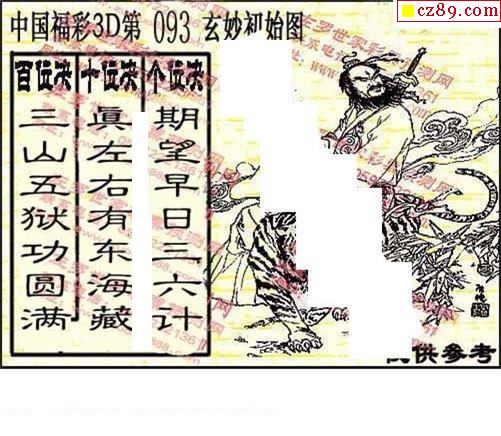 cz89.com
中国福彩3D第 093 玄妙初始图
百位决 十位决 个位决
三山五狱功圆满
真左右有东海藏
期望早日三六计
供参考